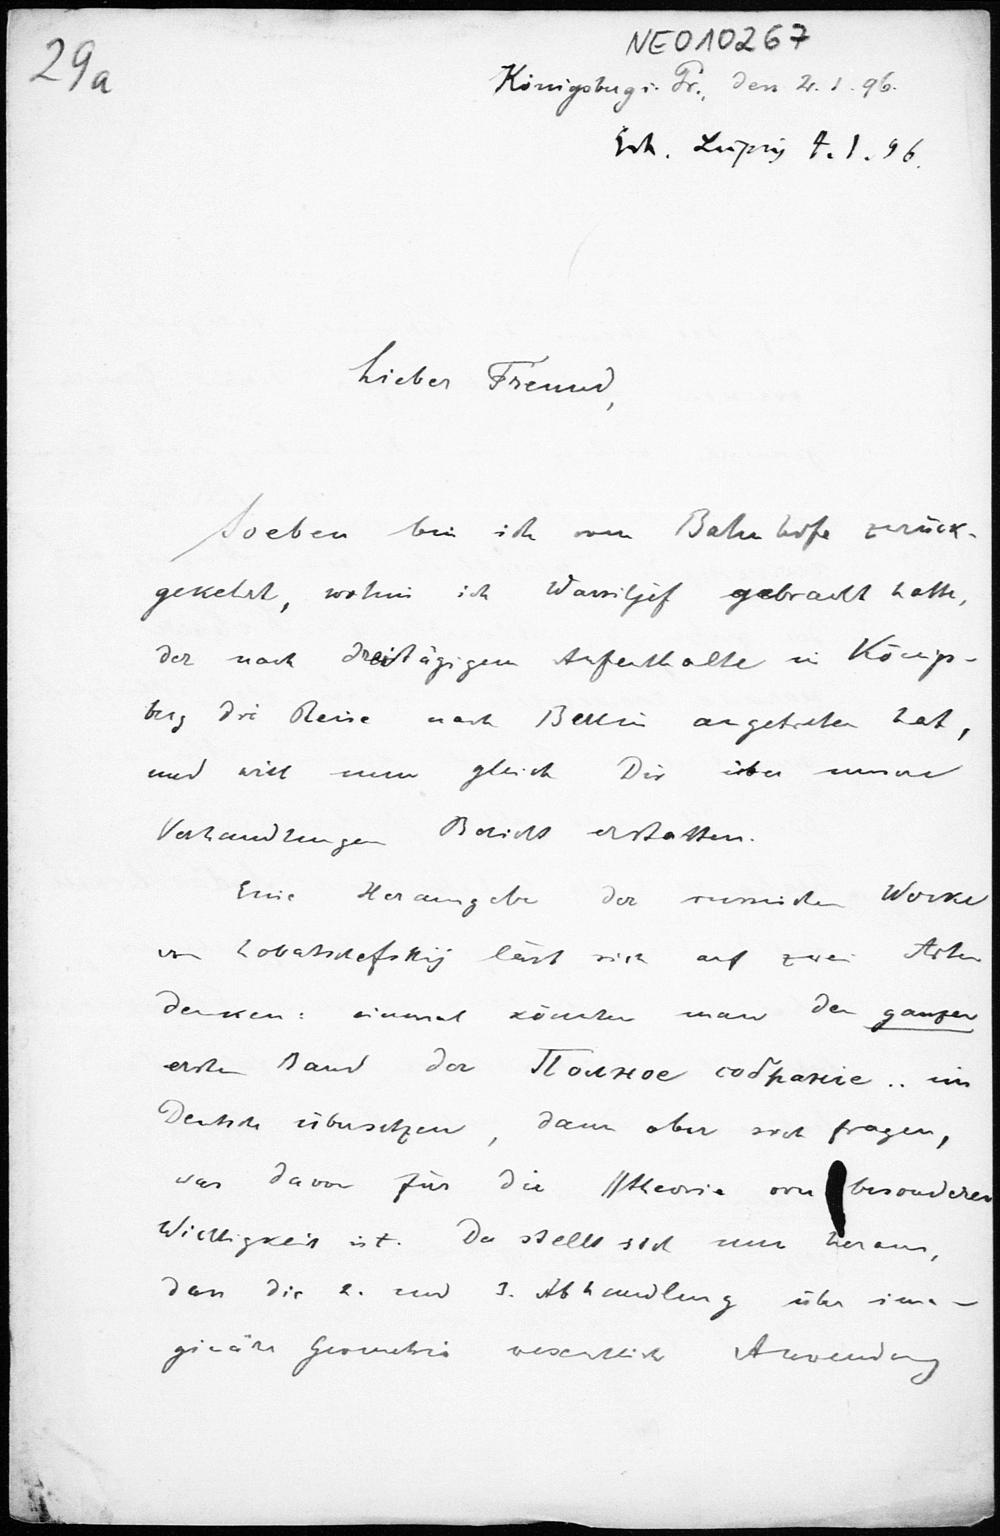 29a
NE010267
Königsberg i. Pr., den 2. 1. 96.
Erh. Leipzig 4. 1. 96.
Lieber Freund,
Soeben bin ich vom Bahnhofe zurück-
gekehrt, wohin ich Wassiljef gebracht hatte,
der nach dreitägigem Aufenthalte in Königs-
berg die Reise nach Berlin angetreten hat,
und will nun gleich Dir über unsere
Verhandlungen Bericht erstatten.
Eine Herausgabe der russischen Werke
von Lobatschefskij lässt sich auf zwei Arten
denken: einmal könnte man den ganzen
ersten Band der Полное собрание .. ins
Deutsche übersetzen, dann aber auch fragen,
was davon für die //theorie von besonderer
Wichtigkeit ist. Da stellt sich nun heraus,
dass die 2. und 3. Abhandlung über ima-
ginäre Geometrie wesentlich Anwendung